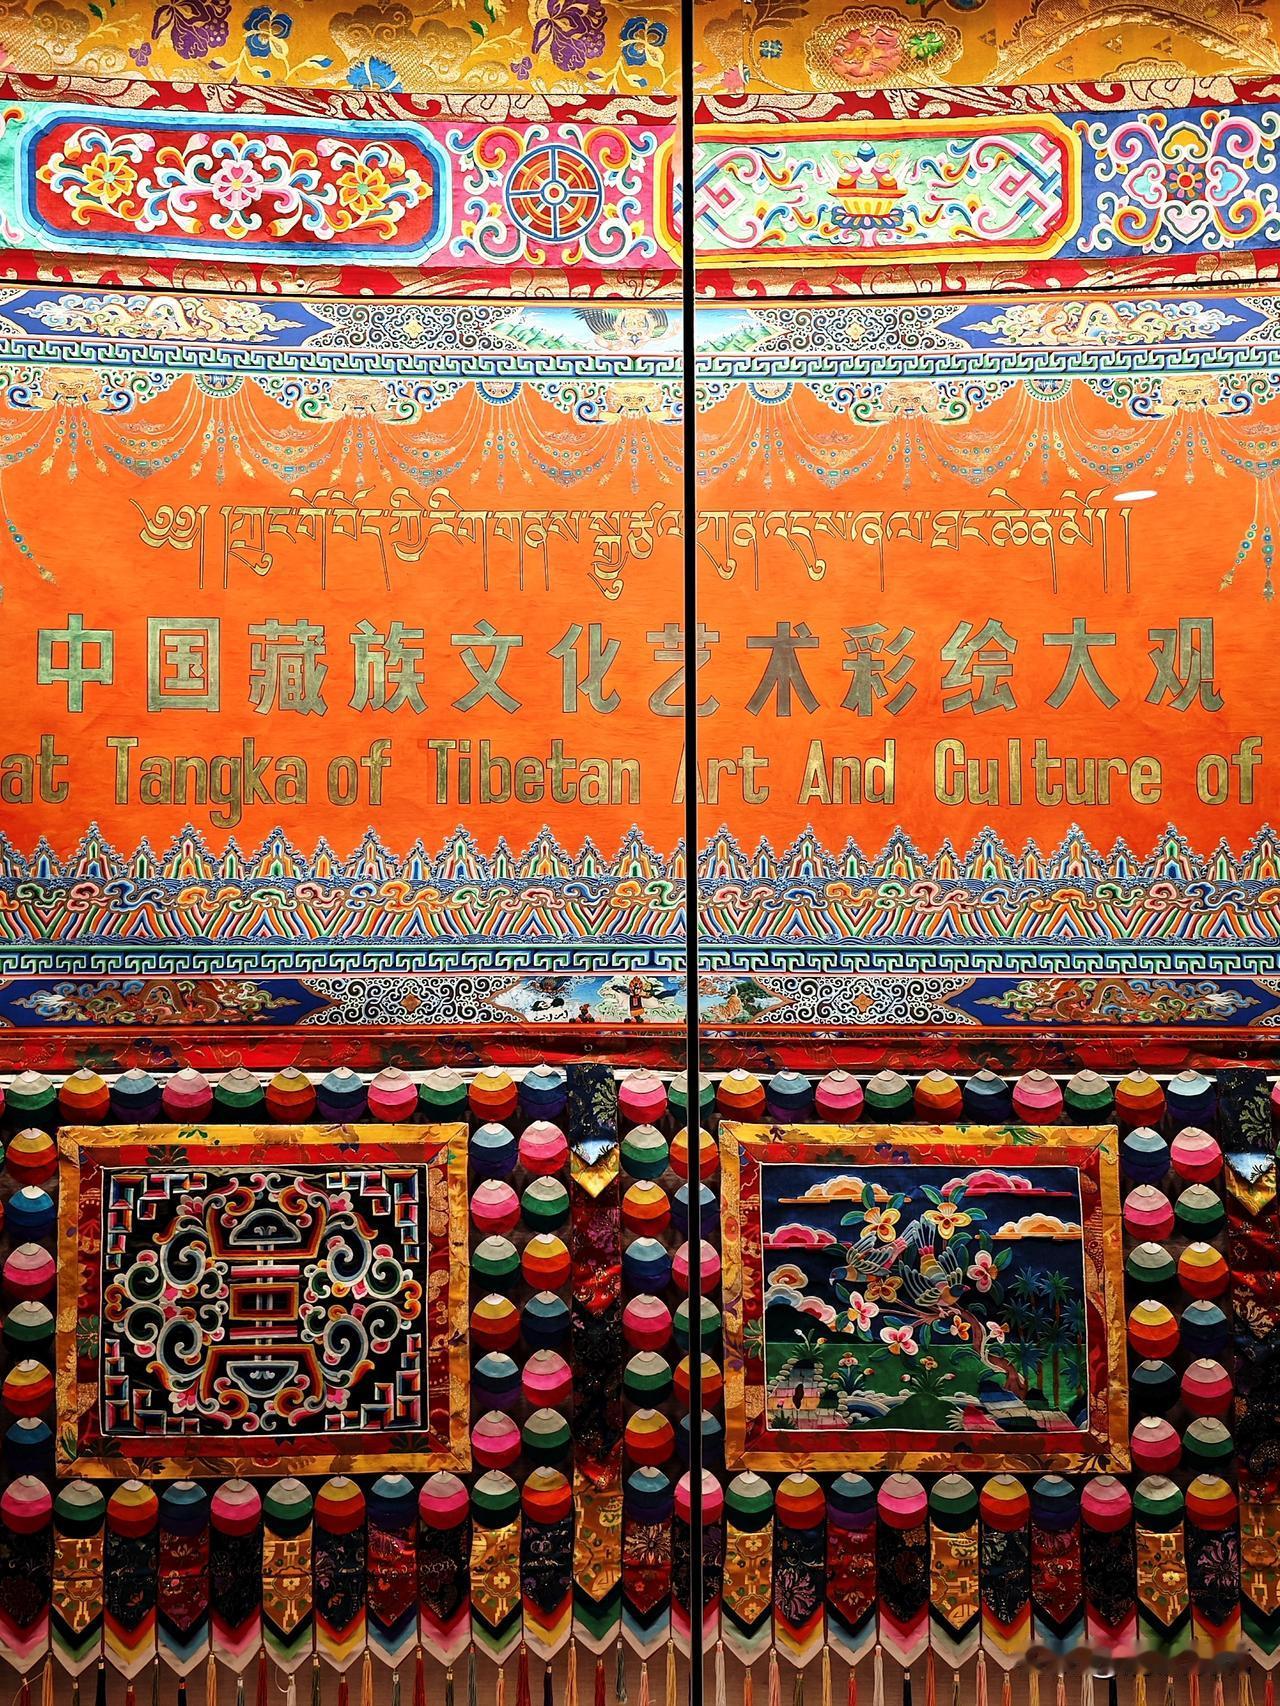 ༄༅། །ཀྲུང་གོ་བོད་ཀྱི་རིག་གནས་སྒྱུ་རྩལ་ཀུན་འདུས་ཞལ་ཐང་ཆེན་མོ། །
中国藏族文化艺术彩绘大观
at Tangka of Tibetan Art And Culture of